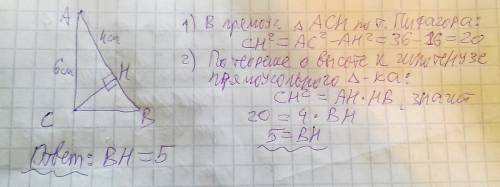 A
4см
6см
H
C
B
Ответ: BH=5
1) В прямоуг. △ACH по т. Пифагора:
CH²=AC²-AH²=36-16=20
2) По теореме о высоте к гипотенузе
прямоугольного △-ка:
CH²=AH·HB, значит
20=4·BH
5=BH